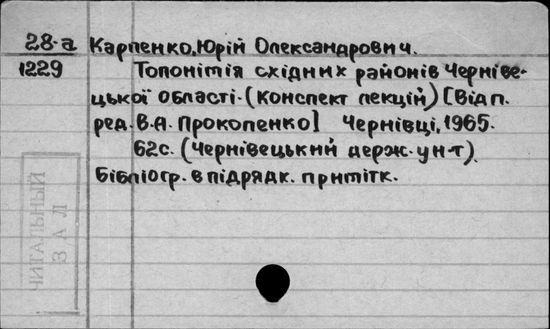 28-а Карпенко, Юрій Олександрович.
1229 Топонімія східних районів Черніве-
цької області. (Конспект лекцій) [Відп.
ред. В.А. Прокопенко] Чернівці, 1965.
62с. (Чернівецький держ. ун-т).
Бібліогр. в підрядк. примітк.
ЧИТАЛЬНЫЙ
ЗАЛ